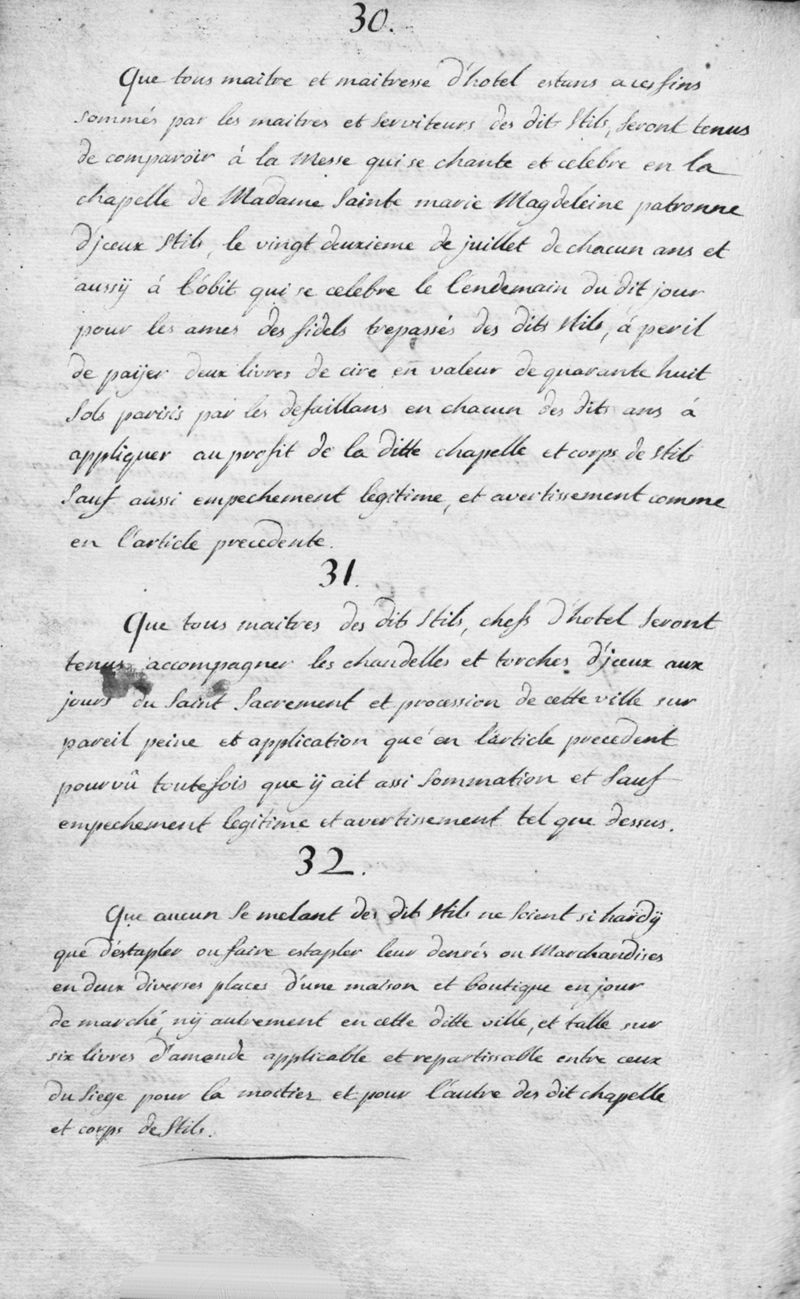 30.
Que tous maitre et maitresse d'hotel estans a ces fins
sommés par les maitres et serviteurs des dits Stils, seront tenus
de comparoir á la Messe qui se chante et celebre en la
chapelle de Madame Sainte marie Magdeleine patronne
d'jceux Stils, le vingt deuxieme de juillet de chacun ans et
aussÿ á l'obit qui se celebre le lendemain du dit jour
pour les ames des fidels trepassés des dits Stils, á peril
de paÿer deux livres de cire en valeur de quarante huit
Sols parisis par les defaillans en chacun des dits ans á
appliquer au profit de la ditte chapelle et corps de Stils
Sauf aussi empechement legitime, et avertissement comme
en l'article precedente.
31.
Que tous maitres des dits Stils, chefs d'hotel Seront
tenus accompagner les chandelles et torches d'jceux aux
jours du Saint Sacrement et procession de cette ville sur
pareil peine et application qué en l'article precedent
pourvû toutefois que ÿ ait assi Sommation et Sauf
empechement legitime et avertissement tel que dessus.
32.
Que aucun se melant des dits Stils ne soient si hardÿ
que d'estapler ou faire estapler leur denrés ou Marchandises
en deux diverses places d'une maison et boutique en jour
de marché, nÿ autrement en cette ditte ville, et talle sur
six livres d'amende applicable et repartissable entre ceux
du Siege pour la moitiez et pour l'autre des dit chapelle
et corps de Stils.